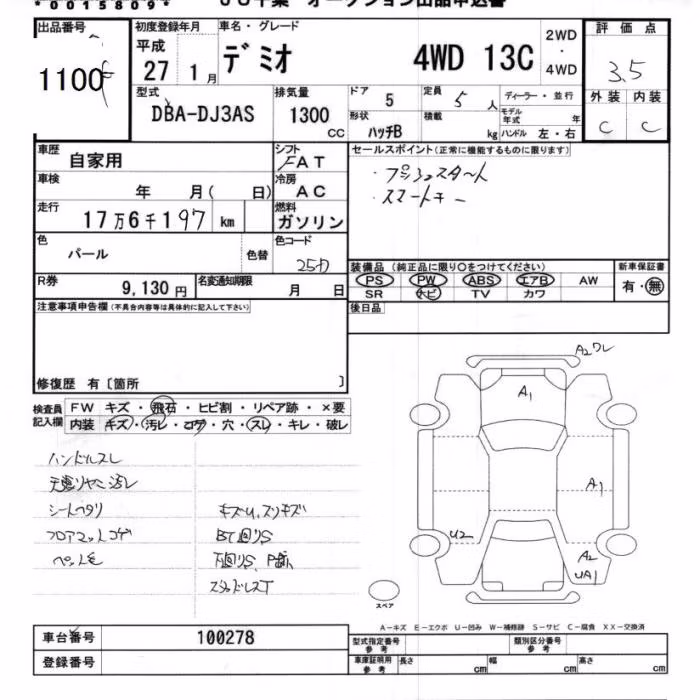 *0015809*
JU千葉 オークション出品申込書
出品番号
1100
初度登録年月
平成
27 1月
車名・グレード
デミオ 4WD 13C
2WD
・
4WD
評価点
3.5
外装 内装
C C
型式
DBA-DJ3AS
排気量
1300
CC
ドア
5
定員
5人
ディーラー・並行
形状
ハッチB
積載
kg
モデル年式
年
ハンドル 左・右
車歴
自家用
シフト
FAT
セールスポイント(正常に機能するものに限ります)
・プッシュスタート
・スマートキー
車検
年 月( 日)
冷房
AC
走行
17万6千197 km
燃料
ガソリン
色
パール
色替
色コード
25D
装備品(純正品に限り○をつけてください)
新車保証書
PS PW ABS エアB AW
SR ナビ TV カワ
有・無
R券
9,130円
名変通知期限
月 日
後日品
注意事項申告欄(不具合内容等は具体的に記入して下さい)
修復歴 有〔箇所 〕
検査員記入欄
FW キズ・飛石・ヒビ割・リペア跡・×要
内装 キズ・汚レ・コゲ・穴・スレ・キレ・破レ
ハンドルスレ
天張リヤニ汚レ
シートヘタリ
フロアマットコゲ
ペット毛
キズU、スリキズ
BT回りS
下回りS、
スタッドレスT
A2ワレ
A1
A1
U2
A2
UA1
スペア
A-キズ E-エクボ U-凹み W-補修跡 S-サビ C-腐食 XX-交換済
車台番号
100278
登録番号
型式指定番号
参考
類別区分番号
参考
車庫証明用
参考
長さ cm 幅 cm 高さ cm